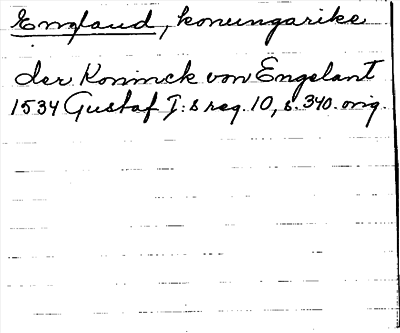 England, konungarike
der Konnick von Engelant
1534 Gustaf I:s reg. 10, s. 340. orig.